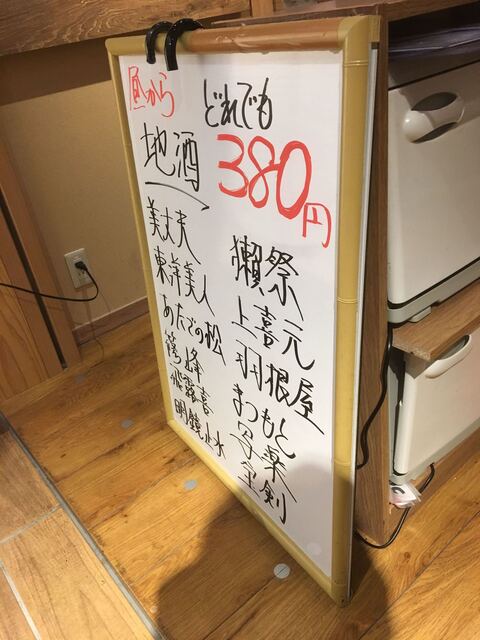 昼から
地酒
どれでも
380円
美丈夫
東洋美人
あたごの松
篠峰
飛露喜
明鏡止水
獺祭
上喜元
羽根屋
まつもと
寫楽
宝剣